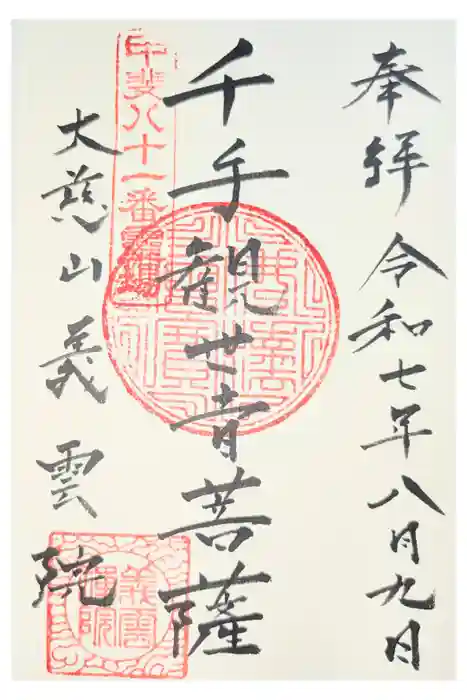 奉拝 令和七年八月九日
千手観世音菩薩
甲斐八十一番霊場
大慈山義雲院
義雲禅院